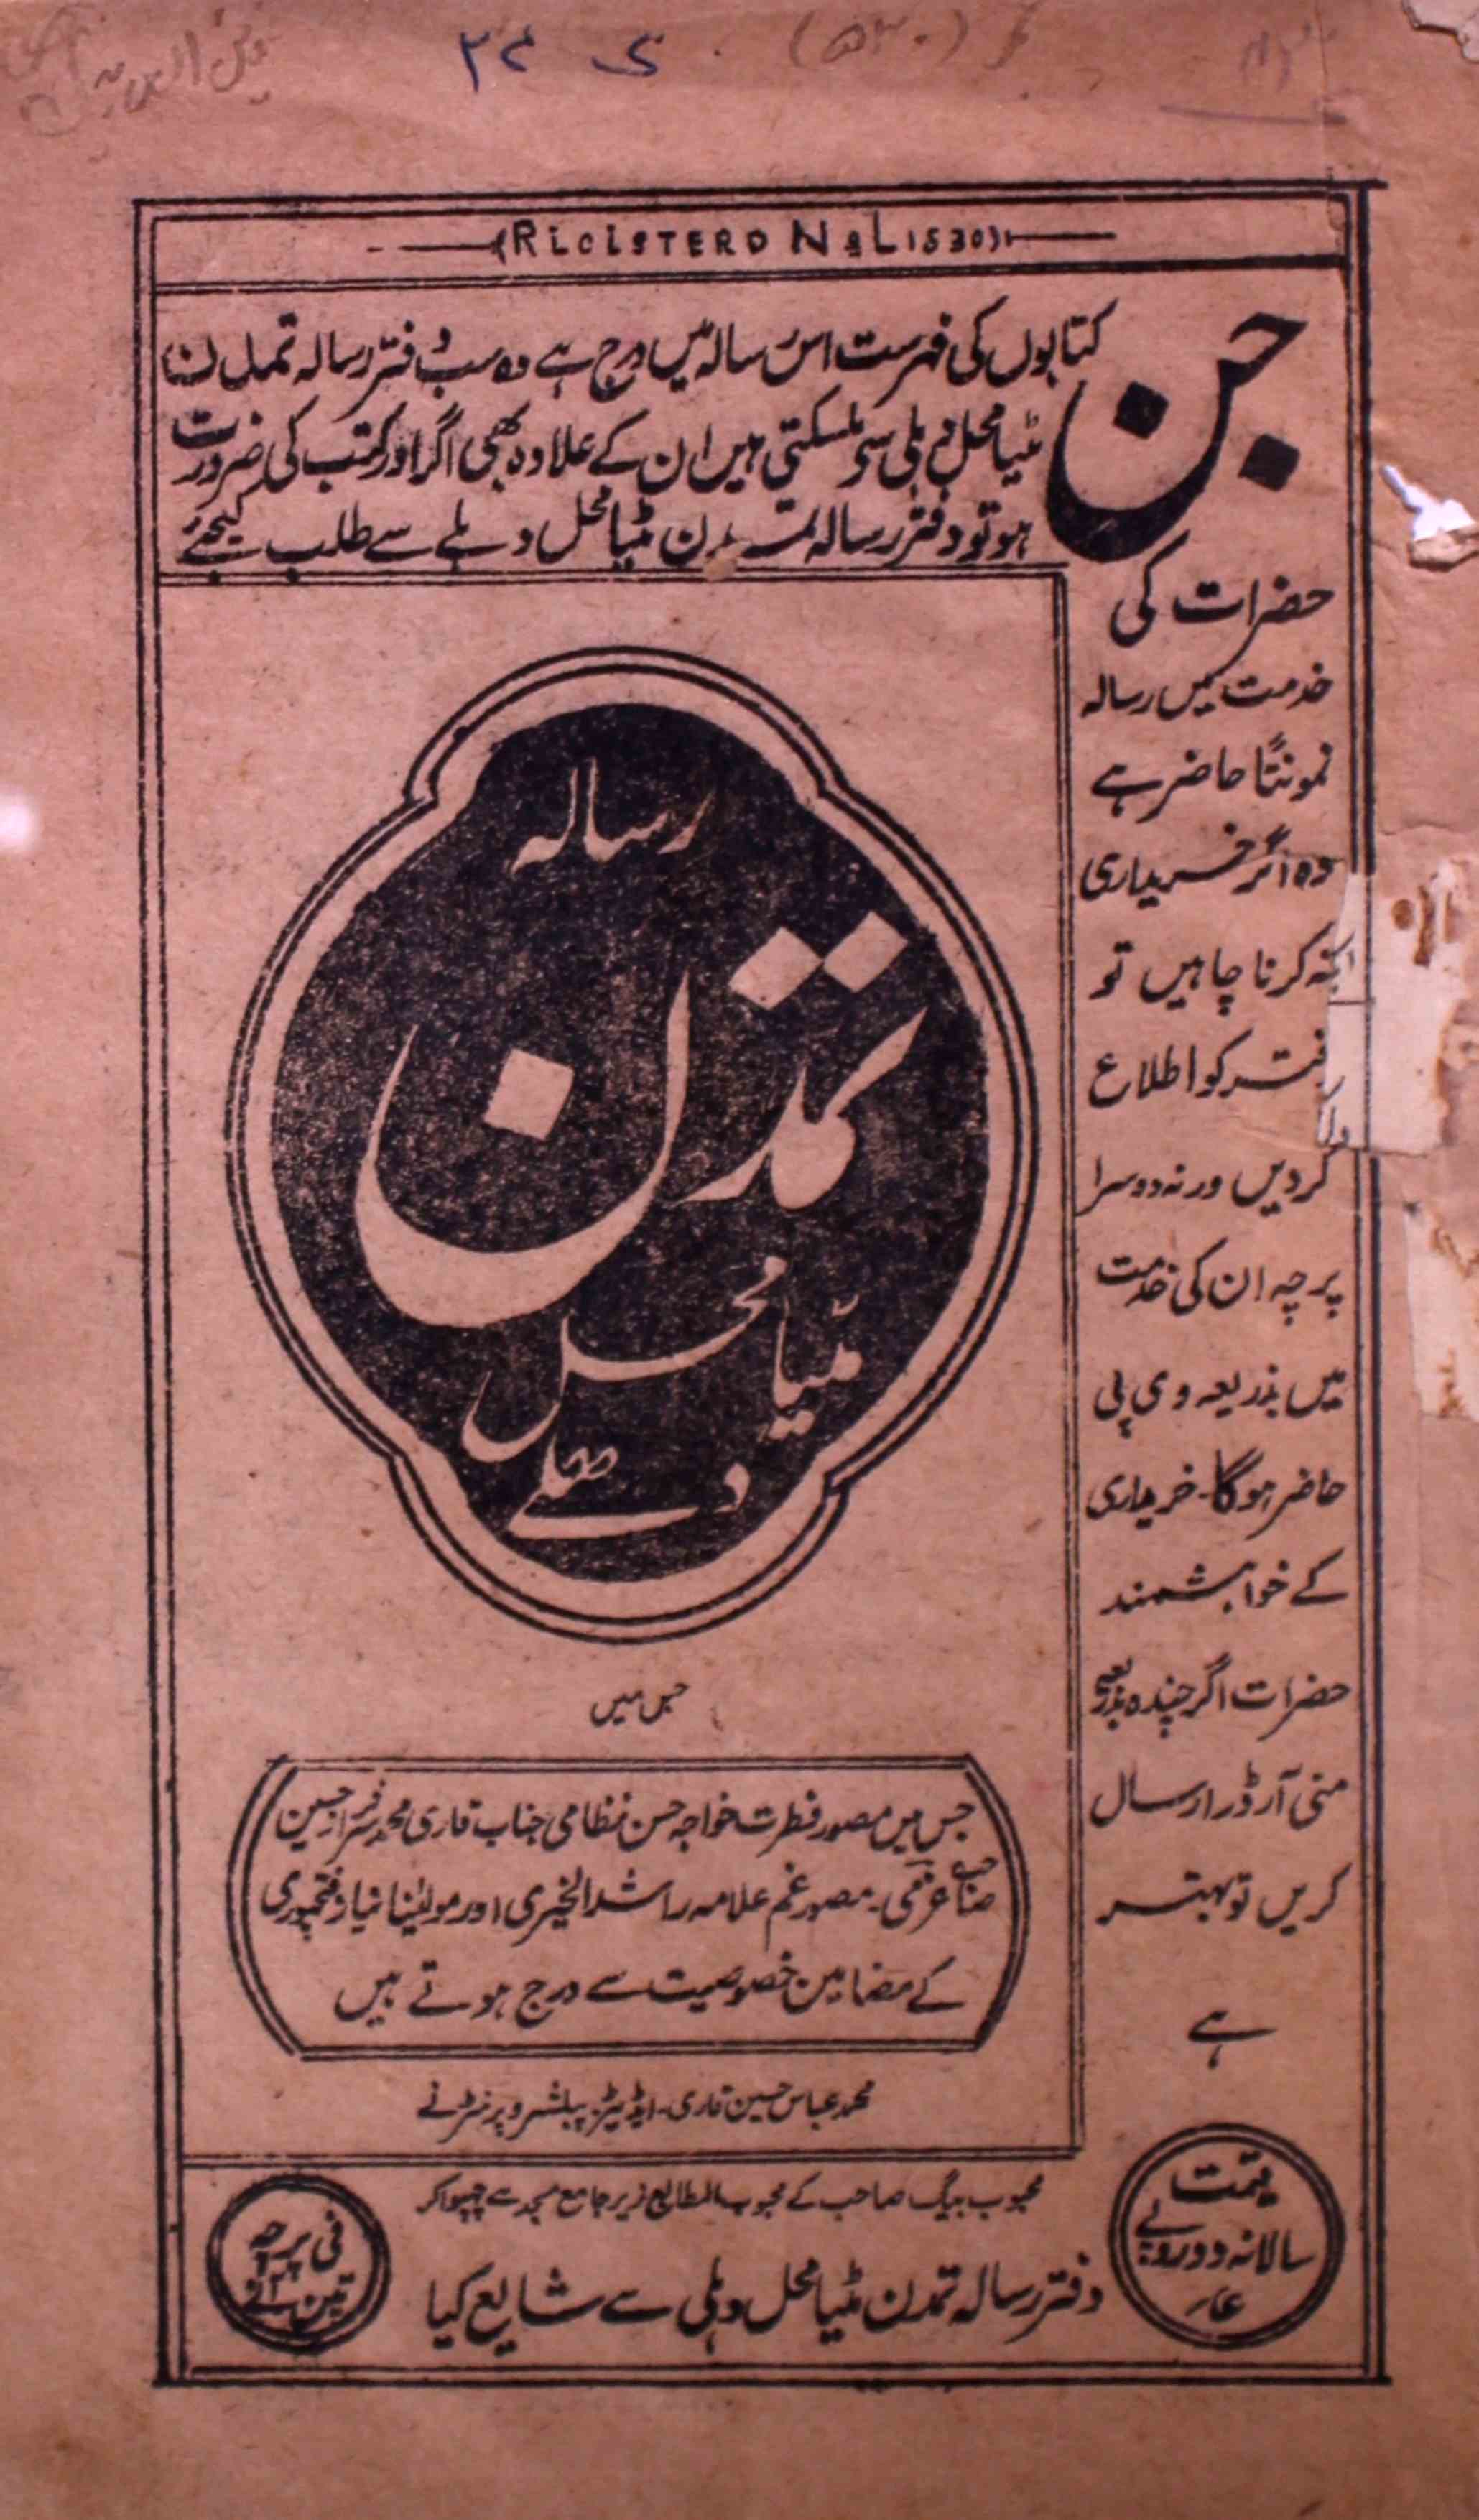 (RLCISTERD No L1530)
جن
کتابوں کی فہرست اس رسالہ میں درج ہے وہ سب دفتر رسالہ تمدن
مٹیا محل دہلی سے مل سکتی ہیں ان کے علاوہ بھی اگر اور کتب کی ضرورت
ہو تو دفتر رسالہ تمدن مٹیا محل دہلے سے طلب کیجئے
حضرات کی
خدمت میں رسالہ
نمونتاً حاضر ہے
وہ اگر خریداری
نہ کرنا چاہیں تو
دفتر کو اطلاع
کردیں ورنہ دوسرا
پرچہ ان کی خدمت
میں بذریعہ وی پی
حاضر ہوگا۔ خریداری
کے خواہشمند
حضرات اگر چندہ بذریعہ
منی آرڈر ارسال
کریں تو بہتر
ہے
رسالہ
تمدن
مٹیا محل
دھلے
جس میں
جس میں مصور فطرت خواجہ حسن نظامی جناب قاری محمد سرفراز حسین
صاحب عزمی۔ مصور غم علامہ راشد الخیری اور مولینا نیاز فتحپوری
کے مضامین خصوصیت سے درج ہوتے ہیں
محمد عباس حسین قاری۔ ایڈیٹر۔ پبلشر و پرنٹر نے
محبوب بیگ صاحب کے محبوب المطابع زیر جامع مسجد سے چھپوا کر
دفتر رسالہ تمدن مٹیا محل دہلی سے شایع کیا
قیمت
سالانہ دو روپے
فی پرچہ
تین آنے